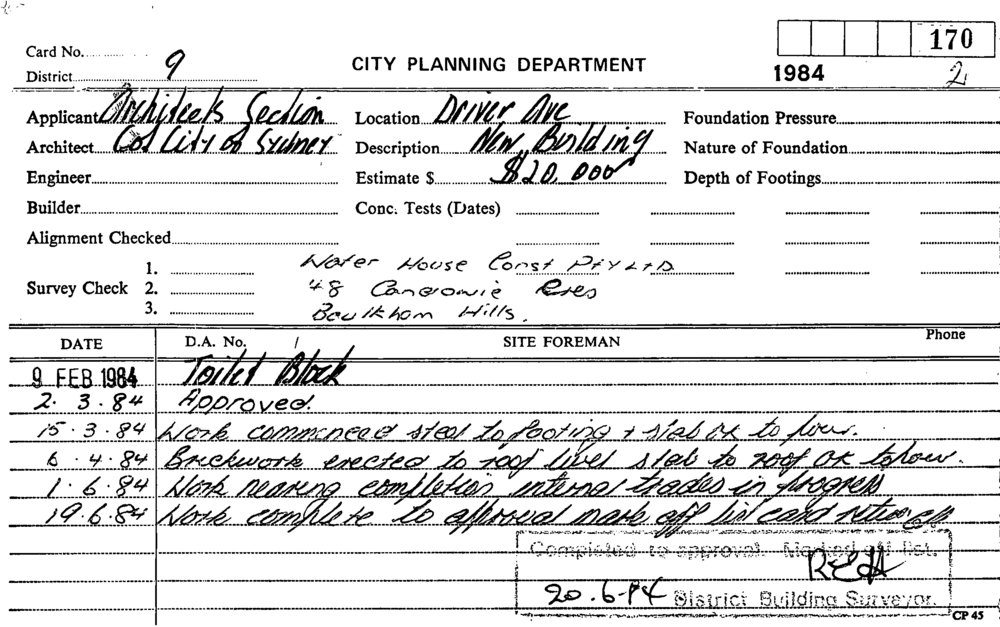 170
Card No.
District 9
CITY PLANNING DEPARTMENT
1984 2
Applicant Architects Section
Location Driver Ave
Foundation Pressure
Architect Col City of Sydney
Description New Building
Nature of Foundation
Engineer
Estimate $ $20,000
Depth of Footings
Builder
Conc. Tests (Dates)
Alignment Checked
Survey Check 1.
2.
3.
Water House Const Pty LTD
48 Cres
Baulkham Hills.
DATE D.A. No. SITE FOREMAN Phone
9 FEB 1984 Toilet Block
2. 3. 84 Approved.
15. 3. 84 Work commenced steel to footing + slab ok to pour.
6. 4. 84 Brickwork erected to roof level slab to roof OK to pour.
1. 6. 84 Work nearing completion internal trades in progress
19. 6. 84 Work complete to approval mark off list card
Completed to approval. Marked off list.
REH
20.6.84 District Building Surveyor.
CP 45